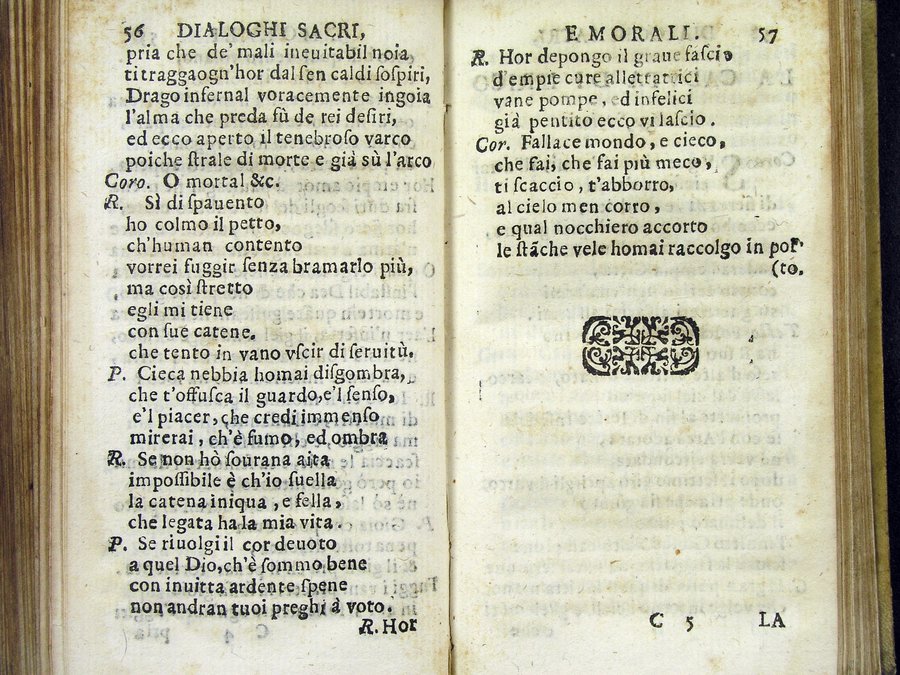 56 DIALOGHI SACRI,
pria che de' mali ineuitabil noia
ti traggaogn'hor dal ſen caldi ſoſpiri,
Drago infernal voracemente ingoia
l'alma che preda fù de rei deſiri,
ed ecco aperto il tenebroſo varco
poiche ſtrale di morte e già sù l'arco
Coro. O mortal &c.
R. Sì di ſpauento
ho colmo il petto,
ch'human contento
vorrei fuggir ſenza bramarlo più,
ma così ſtretto
egli mi tiene
con ſue catene,
che tento in vano vſcir di ſeruitù.
P. Cieca nebbia homai diſgombra,
che t'offuſca il guardo,e'l ſenſo,
e'l piacer, che credi immenſo
mirerai, ch'è fumo, ed ombra
R. Se non hò ſourana aita
impoſſibile è ch'io ſuella
la catena iniqua, e fella,
che legata ha la mia vita.
P. Se riuolgi il cor deuoto
a quel Dio,ch'è ſommo bene
con inuitta ardente ſpene
non andran tuoi preghi à voto.
R. Hor
E MORALI. 57
R. Hor depongo il graue faſcio
d'empie cure allettatrici
vane pompe, ed infelici
già pentito ecco vi laſcio.
Cor. Fallace mondo, e cieco,
che fai, che fai più meco,
ti ſcaccio, t'abborro,
al cielo men corro,
e qual nocchiero accorto
le ſtãche vele homai raccolgo in por-
(to.
C 5 LA